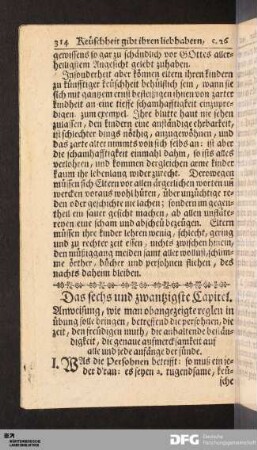 314 Keüschheit gibt ihren liebhabern, c. 26
gewissens so gar zu schändlich vor GOttes aller-
heiligstem Angesicht gelebt zuhaben.
Insonderheit aber können eltern ihren kindern
zu künfftiger keüschheit behülflich sein, wann sie
sich mit gantzem ernst befleissigen ihnen von zarter
kindheit an eine tieffe schamhafftigkeit einzupre-
digen. zum exempel. Ihre blutte haut nie sehen
zulassen, den kindern eine anständige ehrbarkeit,
ist schlechter dings nöthig, anzugewöhnen, und
das zarte alter nimmts von sich selbs an: ist aber
die schamhafftigkeit einmahl dahin, so ists alles
verlohren, und kommen dergleichen arme kinder
kaum ihr lebenlang wider zurecht. Derowegen
müssen sich Eltern vor allen ärgerlichen worten und
wercken voraus wohl hüten, über unzüchtige re-
den oder geschichte nie lachen; sondern im gegen-
theil ein saurer gesicht machen, ab allen unstäte-
reyen eine scham und abscheü bezeügen. Eltern
müssen ihre kinder lehren wenig, schlecht, gering
und zu rechter zeit essen, nichts zwischen hinein,
den müssiggang meiden samt aller wollust, schlim-
me örther, bücher und persohnen fliehen, des
nachts daheim bleiben.
Das sechs und zwantzigste Capitel.
Anweisung, wie man obangezeigte reglen in
übung solle bringen, betreffend die persohnen, die
zeit, den freüdigen muth, die anhaltende bestän-
digkeit, die genaue aufmercksamkeit auf
alle und jede anfänge der sünde.
I. WAs die Persohnen betrifft: so muß ein je-
der d'ran: es seyen 2. tugendsame, keü-
sche
DFG Deutsche
Forschungsgemeinschaft